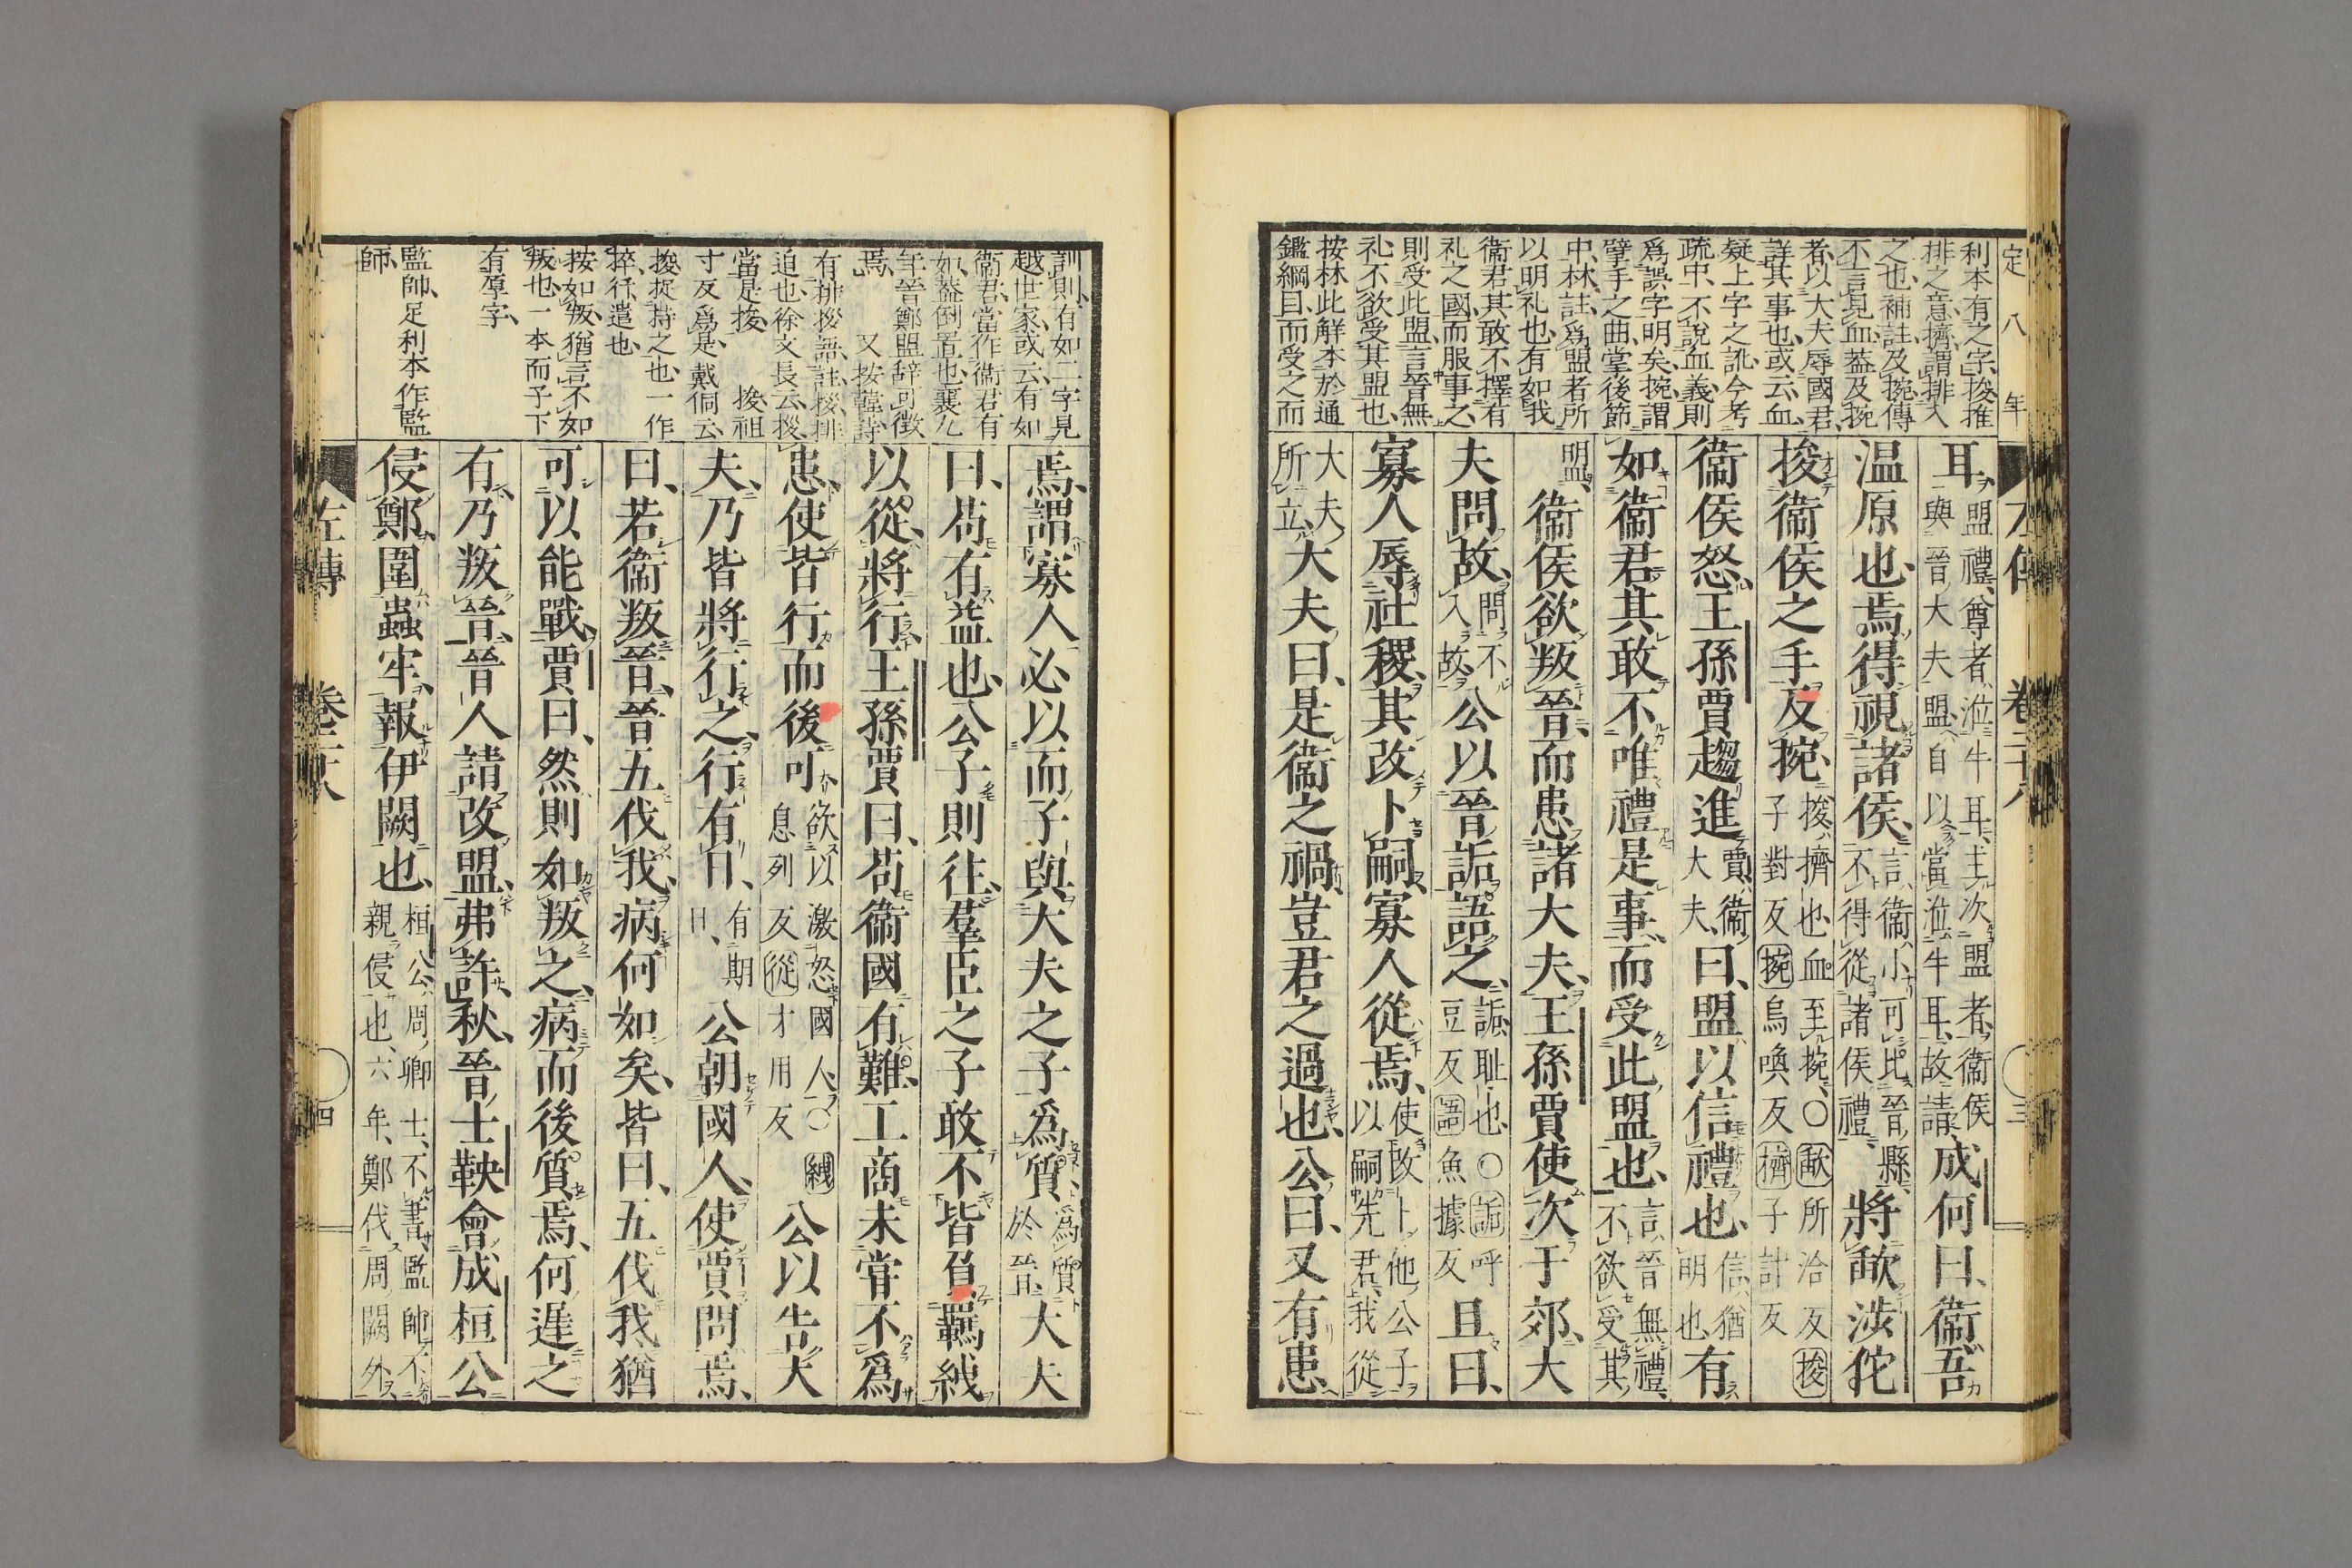 定八年
利本有之字、捘推
排之意、擠謂排入
之也、補註、及捥、傳
不言見血、蓋及捥
者、以大夫辱國君、
詳其事也、或云、血、
疑上字之訛、今考
疏中、不說血義、則
爲誤字明矣、捥、謂
擘手之曲、掌後節
中、林註、爲盟者所
以明礼也、有如我
衞君、其敢不擇有
礼之國、而服事之、
則受此盟、言晉無
礼、不欲受其盟也、
按林此解本於通
鑑綱目、而受之而
耳、盟禮、尊者涖牛耳、主次盟者、衞侯
與晉大夫盟、自以當涖牛耳、故請、成何曰、衞、吾
温原也、焉得視諸侯、言衞小、可比晉縣、
不得從諸侯禮、將歃、涉佗
捘衞侯之手、及捥、捘、擠也、血至捥、○歃所洽反捘
子對反捥烏喚反擠子計反
衞侯怒、王孫賈趨進、賈、衞
大夫、曰、盟以信禮也、信、猶
明也、有
如衞君、其敢不唯禮是事、而受此盟也、言晉無禮、
不欲受其
盟、衞侯欲叛晉、而患諸大夫、王孫賈使次于郊、大
夫問故、問不
入故、公以晉詬語之、詬、恥也、○詬呼
豆反語魚據反且曰、
寡人辱社稷、其改卜嗣、寡人從焉、使改卜他公子
以嗣先君、我從
大夫
所立、大夫曰、是衞之禍、豈君之過也、公曰、又有患
左傳 卷二十八 三
訓則、有如二字見
越世家、或云、有如
衞君、當作衞君有
如、蓋倒置也、襄九
年晉鄭盟辞可徴
焉、又按韓詩
有排捘語、註、捘、排
迫也、徐文長云、捘、
當是捘、捘、祖
寸反爲是、戴侗云、
捘、捉持之也、一作
捽、行遣也、
按如叛、猶言不如
叛也、一本而子下
有爲字、
監帥、足利本作監
師、
焉、謂寡人必以而子與大夫之子爲質、爲質
於晉、大夫
曰、苟有益也、公子則往、羣臣之子、敢不皆負羈紲
以從、將行、王孫賈曰、苟衞國有難、工商未嘗不爲
患、使皆行而後可、欲以激怒國人、○紲
息列反從才用反公以告大
夫、乃皆將行之、行有日、有期
日、公朝國人、使賈問焉、
曰、若衞叛晉、晉五伐我、病何如矣、皆曰、五伐我、猶
可以能戰、賈曰、然則如叛之、病而後質焉、何遲之
有、乃叛晉、晉人請改盟、弗許、秋、晉士鞅會成桓公
侵鄭、圍蟲牢、報伊闕也、桓公、周卿士、不書、監帥不
親侵也、六年、鄭伐周闕外、
左傳 卷二十八 四